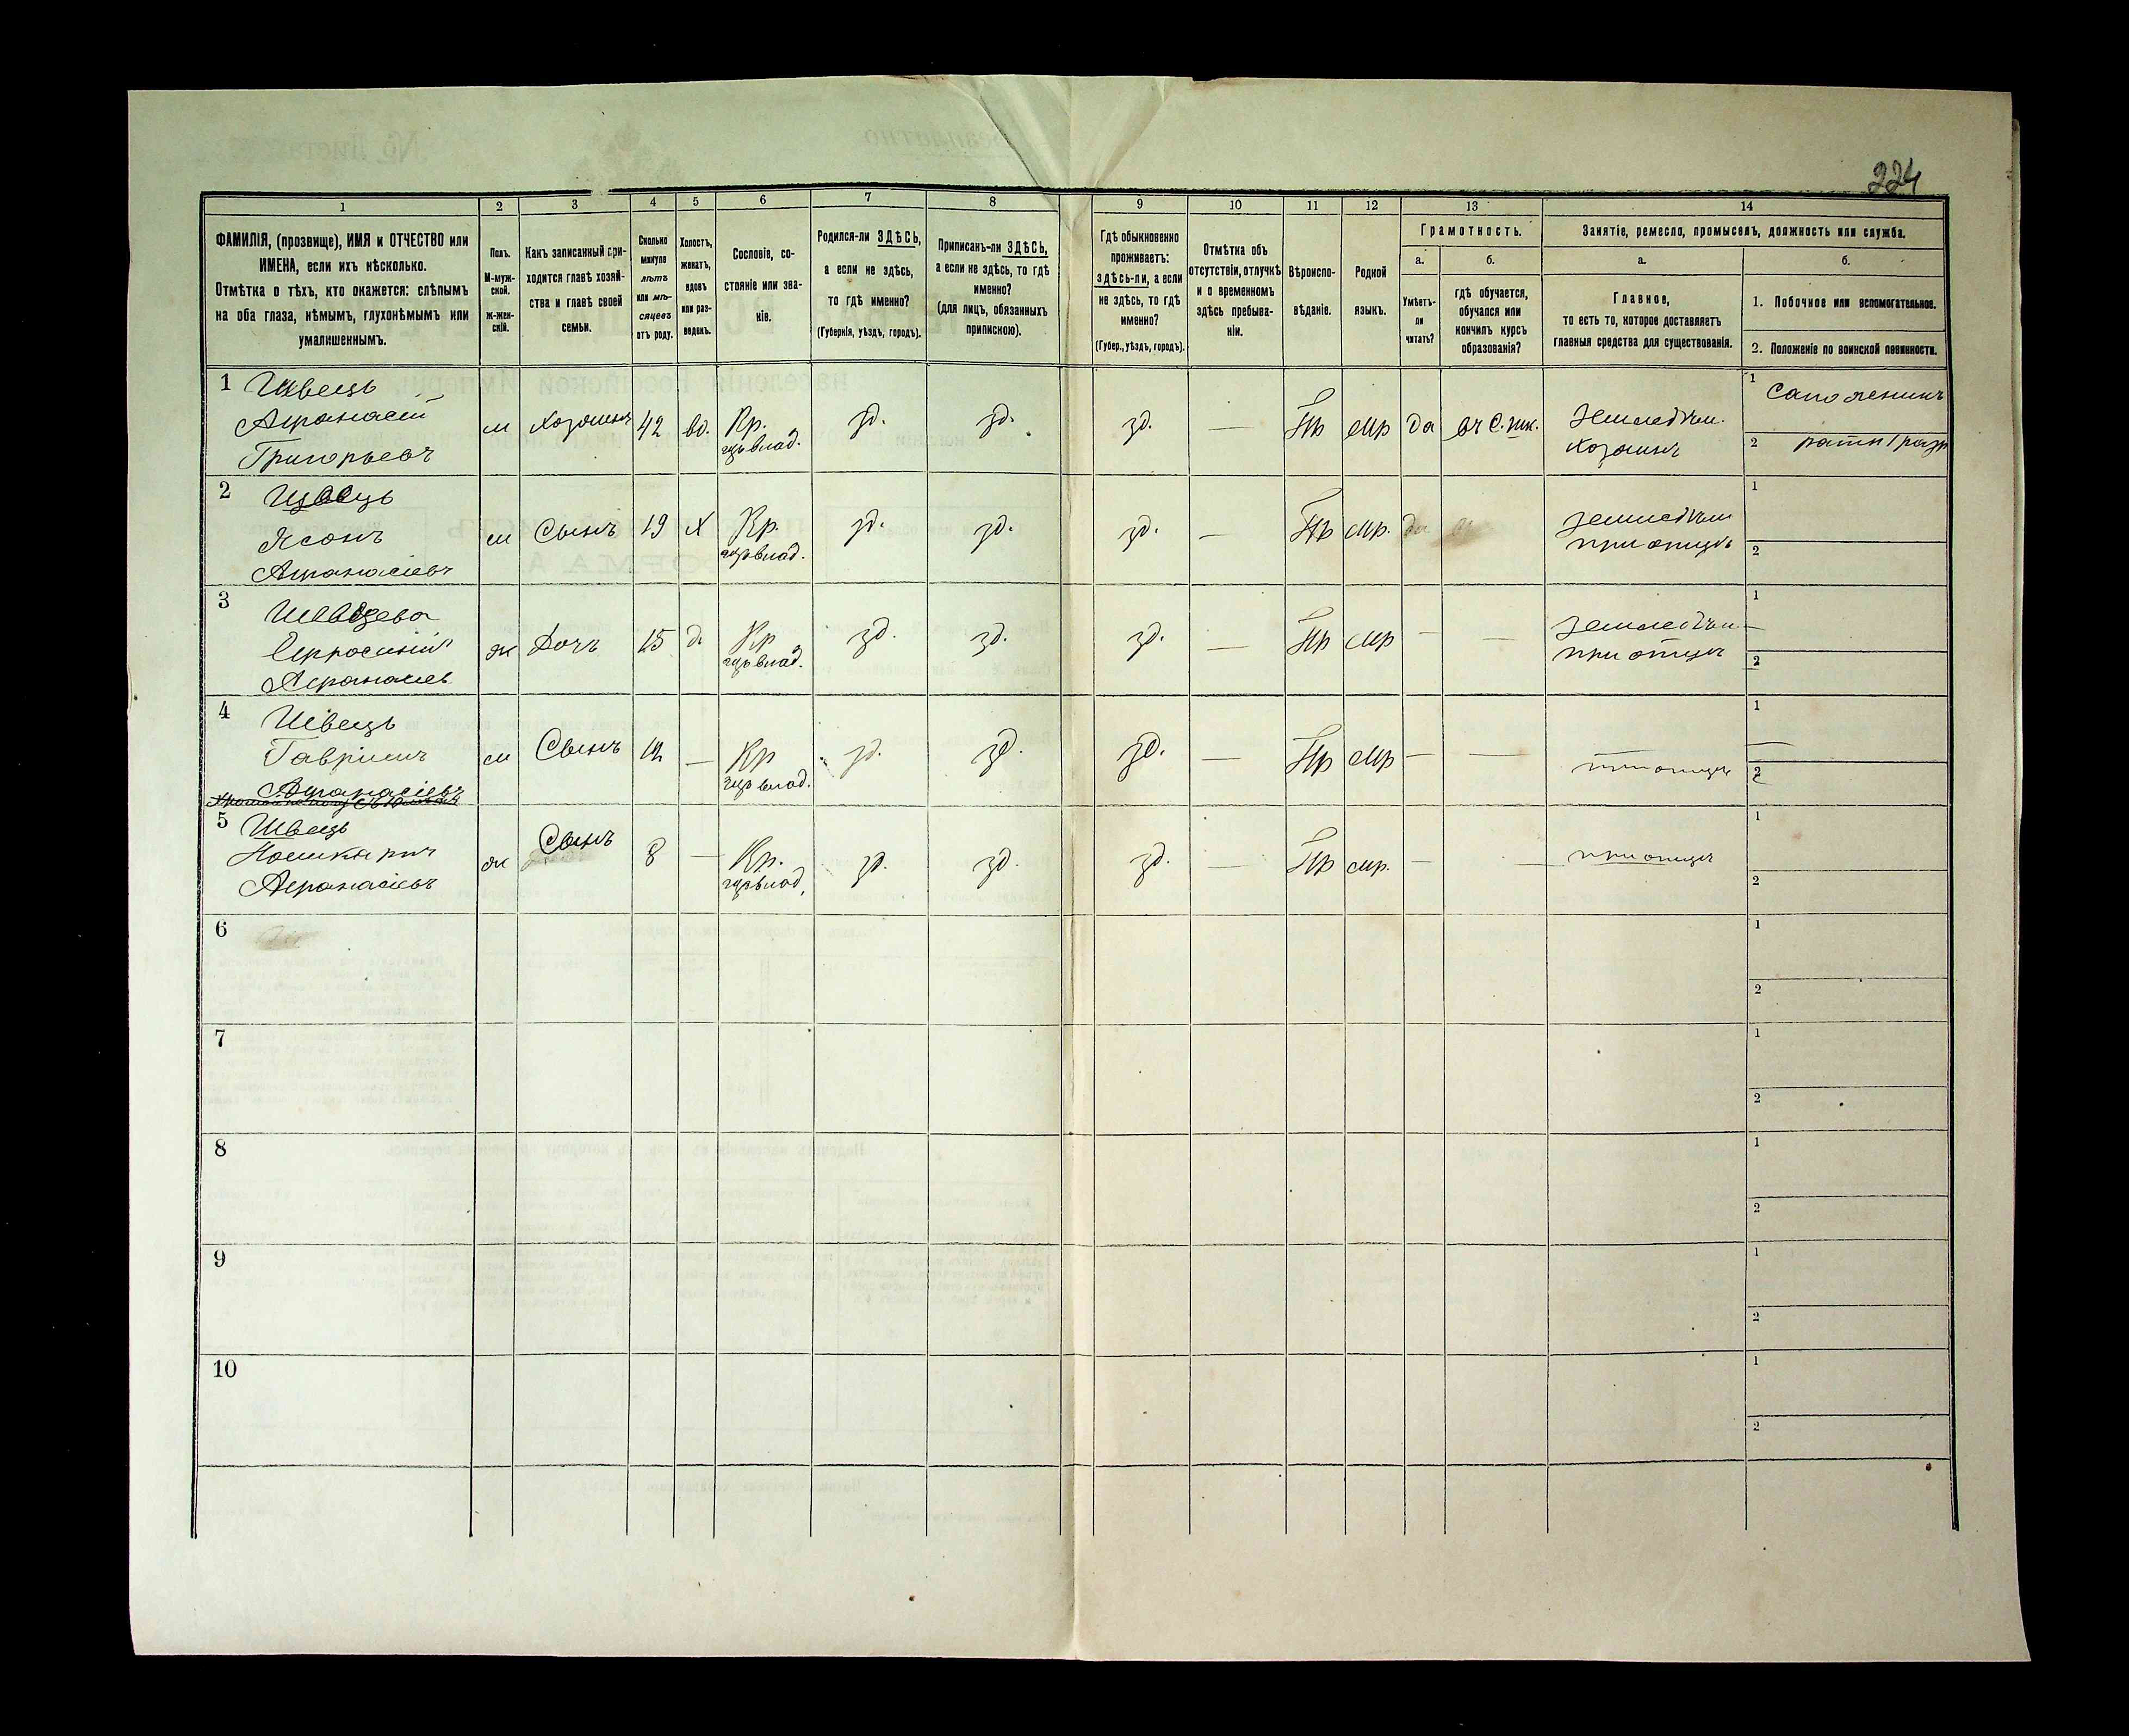 224
1
2
3
4
5
6
7
8
9
10
11
12
13
14
ФАМИЛІЯ, (прозвище), ИМЯ и ОТЧЕСТВО или
ИМЕНА, если ихъ нѣсколько.
Отмѣтка о тѣхъ, кто окажется: слѣпымъ
на оба глаза, нѣмымъ, глухонѣмымъ или
умалишеннымъ.
Полъ.
М-муж-
ской.
ж-жен-
скій.
Какъ записанный при-
ходится главѣ хозяй-
ства и главѣ своей
семьи.
Сколько
минуло
лѣтъ
или мѣ-
сяцевъ
отъ роду.
Холостъ,
женатъ,
вдовъ
или раз-
веденъ.
Сословіе, со-
стояніе или зва-
ніе.
Родился-ли ЗДѢСЬ,
а если не здѣсь,
то гдѣ именно?
(Губернія, уѣздъ, городъ).
Приписанъ-ли ЗДѢСЬ,
а если не здѣсь, то гдѣ
именно?
(для лицъ, обязанныхъ
припискою).
Гдѣ обыкновенно
проживаетъ:
ЗДѢСЬ-ЛИ, а если
не здѣсь, то гдѣ
именно?
(Губер., уѣздъ, городъ).
Отмѣтка объ
отсутствіи, отлучкѣ
и о временномъ
здѣсь пребыва-
ніи.
Вѣроиспо-
вѣданіе.
Родной
языкъ.
Грамотность.
а.
Умѣетъ-
ли
читать?
б.
гдѣ обучается,
обучался или
кончилъ курсъ
образованія?
Занятіе, ремесло, промыселъ, должность или служба.
а.
Главное,
то есть то, которое доставляетъ
главныя средства для существованія.
б.
1. Побочное или вспомогательное.
2. Положеніе по воинской повинности.
1 Швецъ
Афанасій
Григорьевъ
м Хозяинъ 42 вд. Кр. зд. зд. зд. — Пр мр да въ С. шк. Земледѣл.
гдрвлад.
хозяинъ
1 Сапожникъ
2 ратн 1 разр
2 Швецъ
Ясонъ
Афанасіевъ
м Сынъ 19 х Кр. зд. зд. зд. — Пр мр. да земледѣл
гдрвлад.
при отцѣ
1
2
3 Швецева
Афанасіев
ж Дочь 15 д. Кр зд. зд. зд. — Пр мр — — земледѣл.
гдрвлад.
при отцѣ
1 —
2
4 Швецъ
Гавріилъ
Афанасіевъ
м Сынъ — Кр зд. зд. зд. — Пр мр — —
гдрвлад.
при отцѣ
1
2
5 Швецъ
Афанасіевъ
ж Сынъ 8 — Кр. зд. зд. зд. — Пр мр. — — при отцѣ
гдрвлад.
1
2
6
1
2
7
1
2
8
1
2
9
1
2
10
1
2